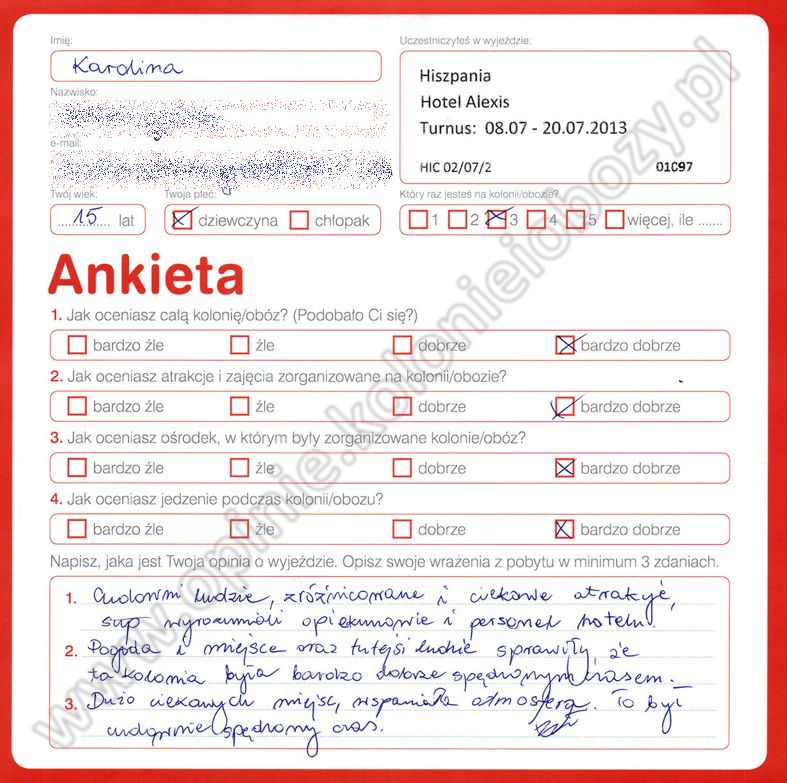 Imię:
Karolina
Uczestniczyłeś w wyjeździe:
Hiszpania
Hotel Alexis
Turnus: 08.07 - 20.07.2013
HIC 02/07/2 01C97
Nazwisko:
e-mail:
Twój wiek:
15 lat
Twoja płeć:
dziewczyna chłopak
Który raz jesteś na kolonii/obozie?
1 2 3 4 5 więcej, ile .......
Ankieta
1. Jak oceniasz całą kolonię/obóz? (Podobało Ci się?)
bardzo źle źle dobrze bardzo dobrze
2. Jak oceniasz atrakcje i zajęcia zorganizowane na kolonii/obozie?
bardzo źle źle dobrze bardzo dobrze
3. Jak oceniasz ośrodek, w którym były zorganizowane kolonie/obóz?
bardzo źle źle dobrze bardzo dobrze
4. Jak oceniasz jedzenie podczas kolonii/obozu?
bardzo źle źle dobrze bardzo dobrze
Napisz, jaka jest Twoja opinia o wyjeździe. Opisz swoje wrażenia z pobytu w minimum 3 zdaniach.
1. Cudowni ludzie, zróżnicowane i ciekawe atrakcje,
wyrozumiali opiekunowie i personel hotelu.
2. Pogoda i miejsce oraz tutejsi ludzie sprawiły, że
ta kolonia była bardzo dobrze spędzonym czasem.
3. Dużo ciekawych miejsc, wspaniała atmosfera. To był
cudownie spędzony czas.
www.opinie.kolonieiobozy.pl